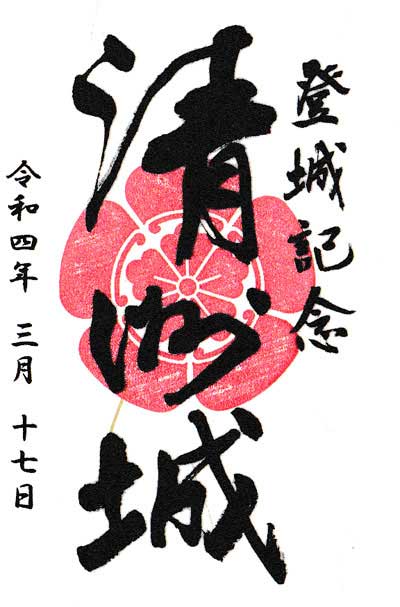 登城記念
清洲城
令和四年 三月 十七日